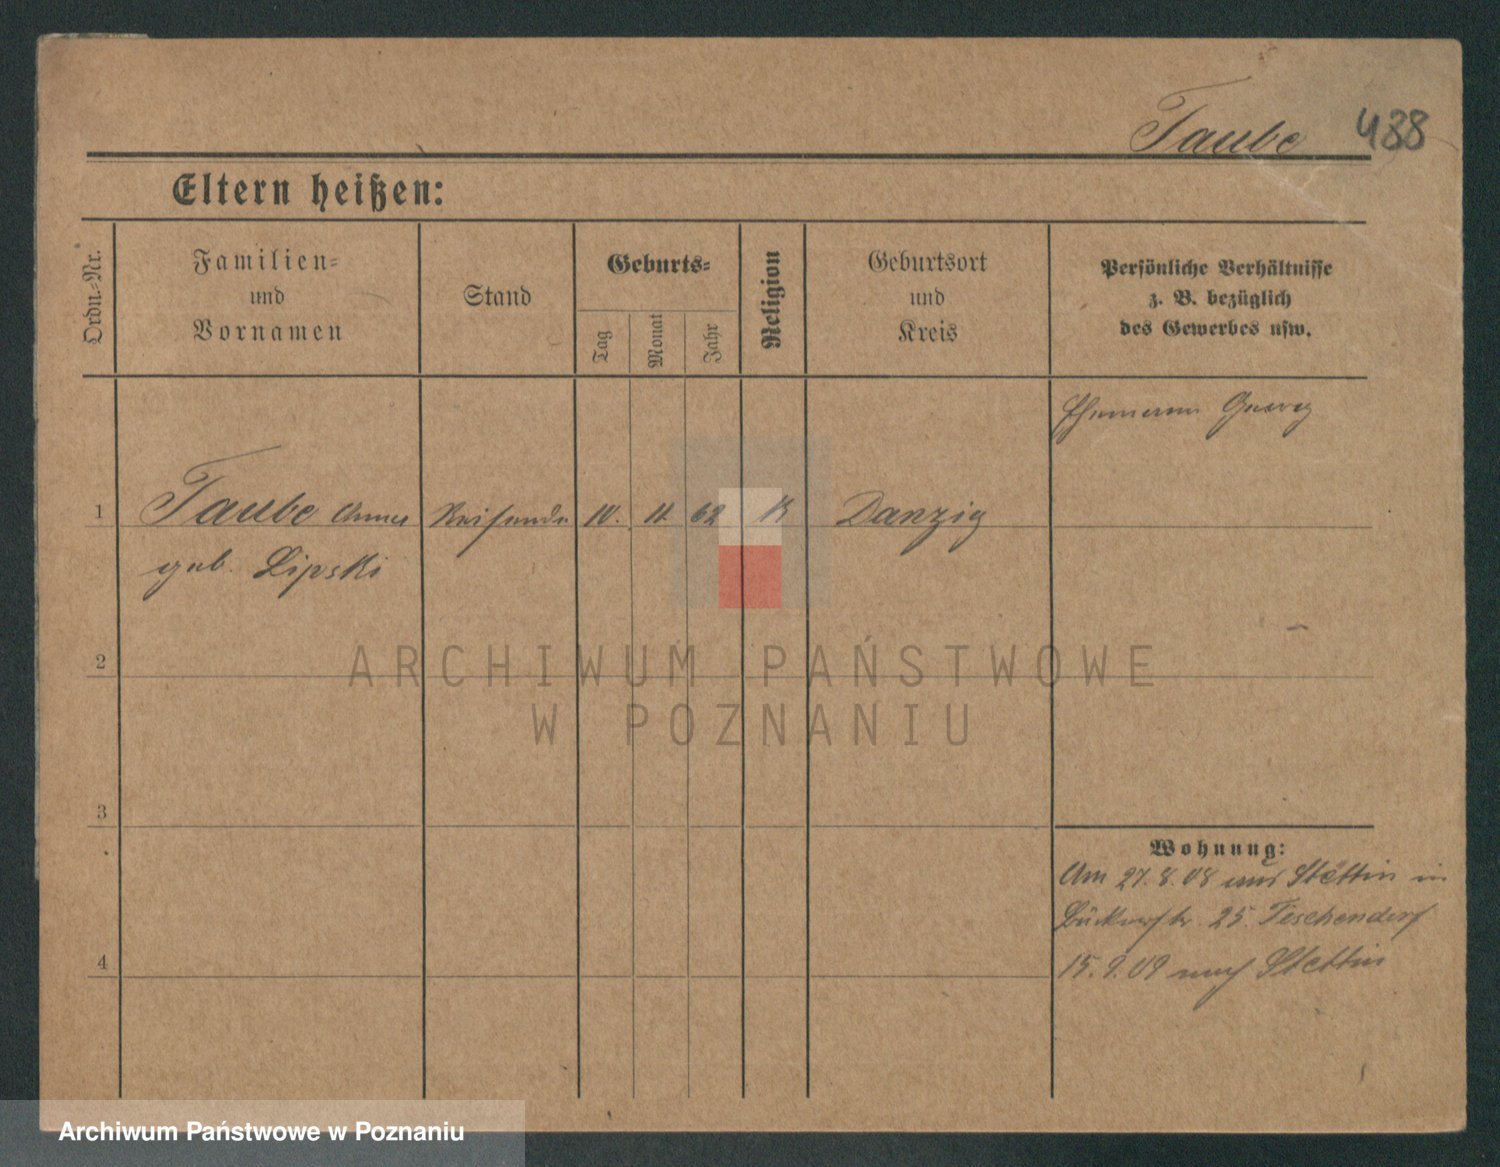 Taube 488
Eltern heißen:
Ordn.-Nr.
Familien-
und
Vornamen
Stand
Geburts-
Tag
Monat
Jahr
Religion
Geburtsort
und
Kreis
Persönliche Verhältnisse
z. B. bezüglich
des Gewerbes usw.
Ehemann Georg
1 Taube Anna Reisende 10. 11 62 K Danzig
geb. Lipski
2
3
4
Wohnung:
Am 27.8.08 aus Stettin in
25. Teschendorf
15.9.09 nach Stettin
ARCHIWUM PAŃSTWOWE
W POZNANIU
Archiwum Państwowe w Poznaniu